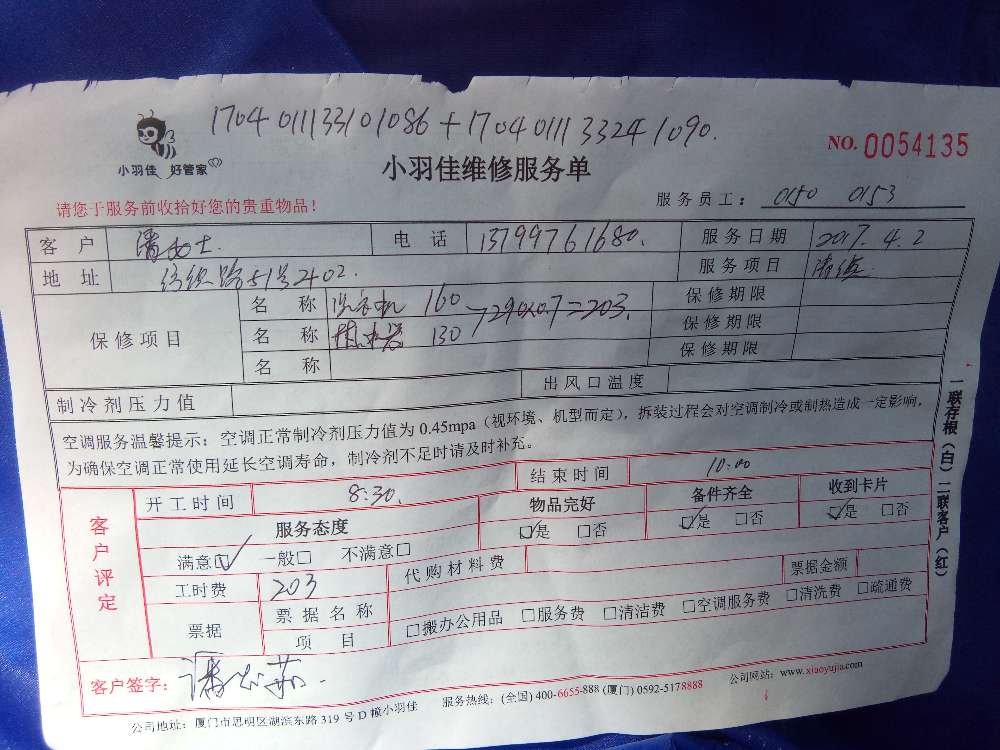 1704011133101086+1704011133241090.
小羽佳 好管家
小羽佳维修服务单
NO. 0054135
请您于服务前收拾好您的贵重物品！
服务员工： 0150 0153
客 户 潘女士. 电 话 13799761680. 服务日期 2017.4.2
地 址 纺织路51号2402. 服务项目 清洗
保修项目
名 称 洗衣机 160 保修期限
290×0.7=203.
名 称 130 保修期限
名 称 保修期限
制冷剂压力值 出风口温度
空调服务温馨提示：空调正常制冷剂压力值为 0.45mpa（视环境、机型而定），拆装过程会对空调制冷或制热造成一定影响，
为确保空调正常使用延长空调寿命，制冷剂不足时请及时补充。
客户评定
开工时间 8:30. 结束时间 10:00
服务态度 物品完好 备件齐全 收到卡片
满意□ 一般□ 不满意□ □是 □否 □是 □否 □是 □否
工时费 203 代购材料费 票据金额
票据 票据名称
项 目 □搬办公用品 □服务费 □清洁费 □空调服务费 □清洗费 □疏通费
客户签字：
公司地址：厦门市思明区湖滨东路 319 号 D 幢小羽佳 服务热线：(全国) 400-6655-888 (厦门) 0592-5178888 公司网站：www.xiaoyujia.com
一联存根（白）二联客户（红）